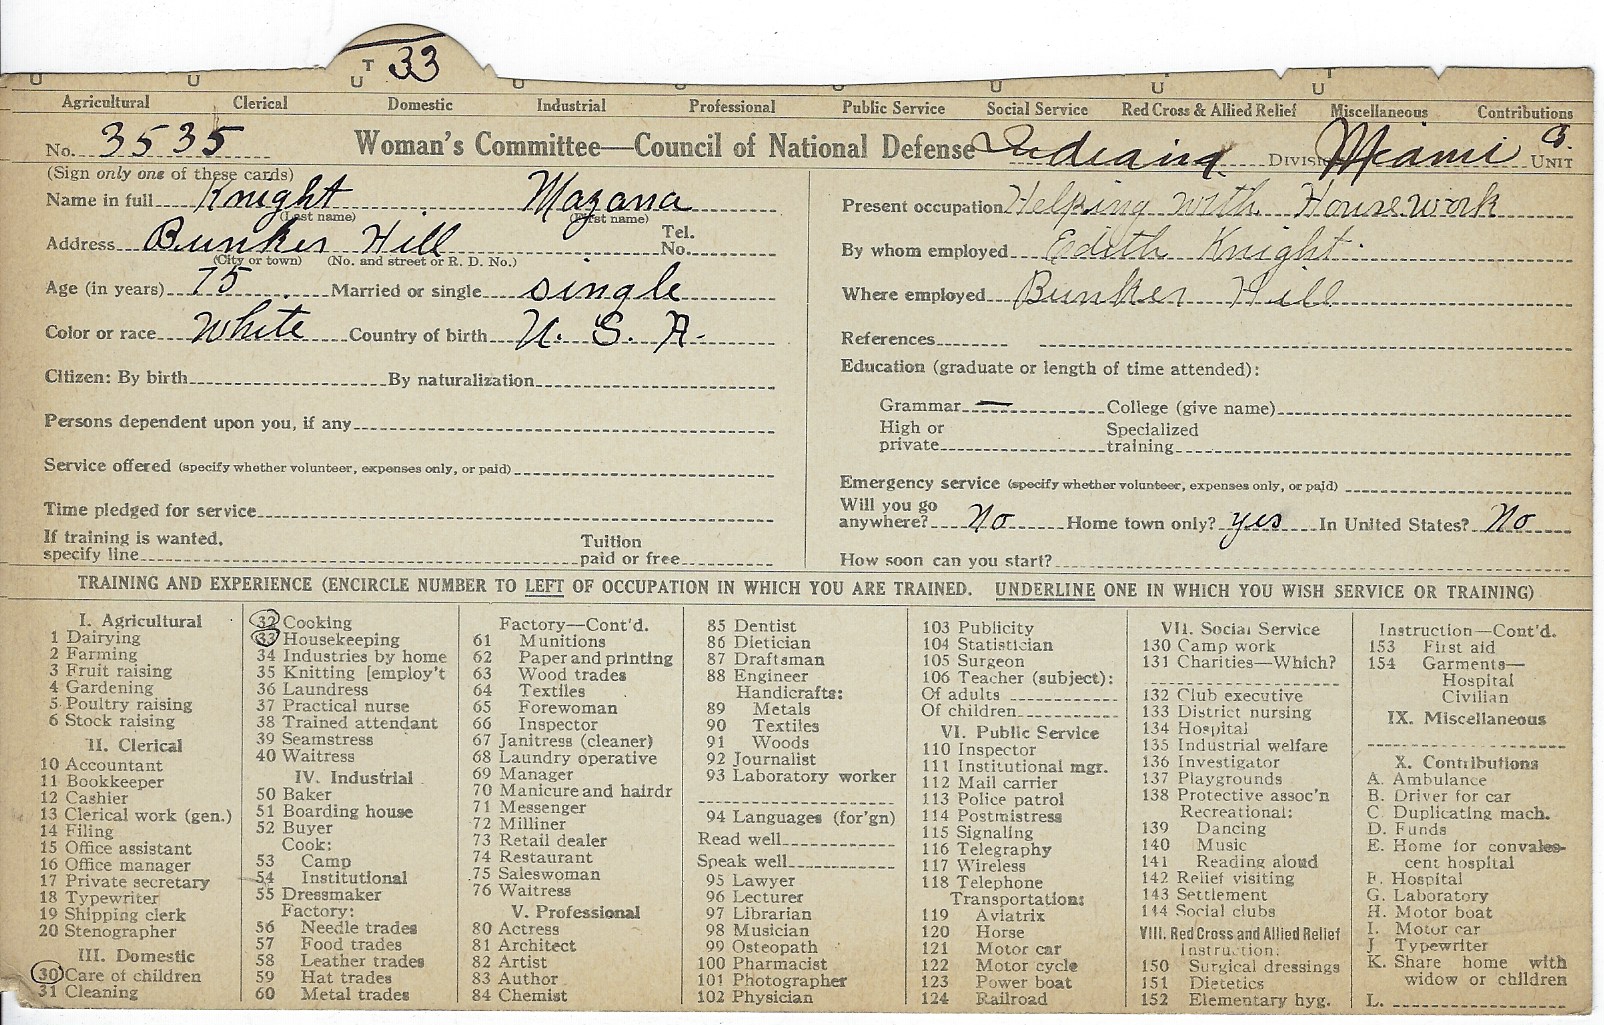 T 33
U U U U U U U U U
Agricultural Clerical Domestic Industrial Professional Public Service Social Service Red Cross & Allied Relief Miscellaneous Contributions
No. 3535 Woman's Committee—Council of National Defense Indiana Division Miami Co. Unit
(Sign only one of these cards)
Name in full Knight Mazana
(Last name) (First name)
Address Bunker Hill Tel. No.
(City or town) (No. and street or R. D. No.)
Age (in years) 75 Married or single single
Color or race White Country of birth U. S. A.
Citizen: By birth By naturalization
Persons dependent upon you, if any
Service offered (specify whether volunteer, expenses only, or paid)
Time pledged for service
If training is wanted, specify line Tuition paid or free
Present occupation Helping with Housework
By whom employed Edith Knight
Where employed Bunker Hill
References
Education (graduate or length of time attended):
Grammar — College (give name)
High or private Specialized training
Emergency service (specify whether volunteer, expenses only, or paid)
Will you go anywhere? No Home town only? yes In United States? No
How soon can you start?
TRAINING AND EXPERIENCE (ENCIRCLE NUMBER TO LEFT OF OCCUPATION IN WHICH YOU ARE TRAINED. UNDERLINE ONE IN WHICH YOU WISH SERVICE OR TRAINING)
I. Agricultural
1 Dairying
2 Farming
3 Fruit raising
4 Gardening
5 Poultry raising
6 Stock raising
II. Clerical
10 Accountant
11 Bookkeeper
12 Cashier
13 Clerical work (gen.)
14 Filing
15 Office assistant
16 Office manager
17 Private secretary
18 Typewriter
19 Shipping clerk
20 Stenographer
III. Domestic
30 Care of children
31 Cleaning
32 Cooking
33 Housekeeping
34 Industries by home
35 Knitting [employ't
36 Laundress
37 Practical nurse
38 Trained attendant
39 Seamstress
40 Waitress
IV. Industrial
50 Baker
51 Boarding house
52 Buyer
Cook:
53 Camp
54 Institutional
55 Dressmaker
Factory:
56 Needle trades
57 Food trades
58 Leather trades
59 Hat trades
60 Metal trades
Factory—Cont'd.
61 Munitions
62 Paper and printing
63 Wood trades
64 Textiles
65 Forewoman
66 Inspector
67 Janitress (cleaner)
68 Laundry operative
69 Manager
70 Manicure and hairdr
71 Messenger
72 Milliner
73 Retail dealer
74 Restaurant
75 Saleswoman
76 Waitress
V. Professional
80 Actress
81 Architect
82 Artist
83 Author
84 Chemist
85 Dentist
86 Dietician
87 Draftsman
88 Engineer
Handicrafts:
89 Metals
90 Textiles
91 Woods
92 Journalist
93 Laboratory worker
94 Languages (for'gn)
Read well
Speak well
95 Lawyer
96 Lecturer
97 Librarian
98 Musician
99 Osteopath
100 Pharmacist
101 Photographer
102 Physician
103 Publicity
104 Statistician
105 Surgeon
106 Teacher (subject):
Of adults
Of children
VI. Public Service
110 Inspector
111 Institutional mgr.
112 Mail carrier
113 Police patrol
114 Postmistress
115 Signaling
116 Telegraphy
117 Wireless
118 Telephone
Transportation:
119 Aviatrix
120 Horse
121 Motor car
122 Motor cycle
123 Power boat
124 Railroad
VII. Social Service
130 Camp work
131 Charities—Which?
132 Club executive
133 District nursing
134 Hospital
135 Industrial welfare
136 Investigator
137 Playgrounds
138 Protective assoc'n
Recreational:
139 Dancing
140 Music
141 Reading aloud
142 Relief visiting
143 Settlement
144 Social clubs
VIII. Red Cross and Allied Relief
Instruction:
150 Surgical dressings
151 Dietetics
152 Elementary hyg.
Instruction—Cont'd.
153 First aid
154 Garments—
Hospital
Civilian
IX. Miscellaneous
X. Contributions
A. Ambulance
B. Driver for car
C. Duplicating mach.
D. Funds
E. Home for convales-
cent hospital
F. Hospital
G. Laboratory
H. Motor boat
I. Motor car
J Typewriter
K. Share home with
widow or children
L.